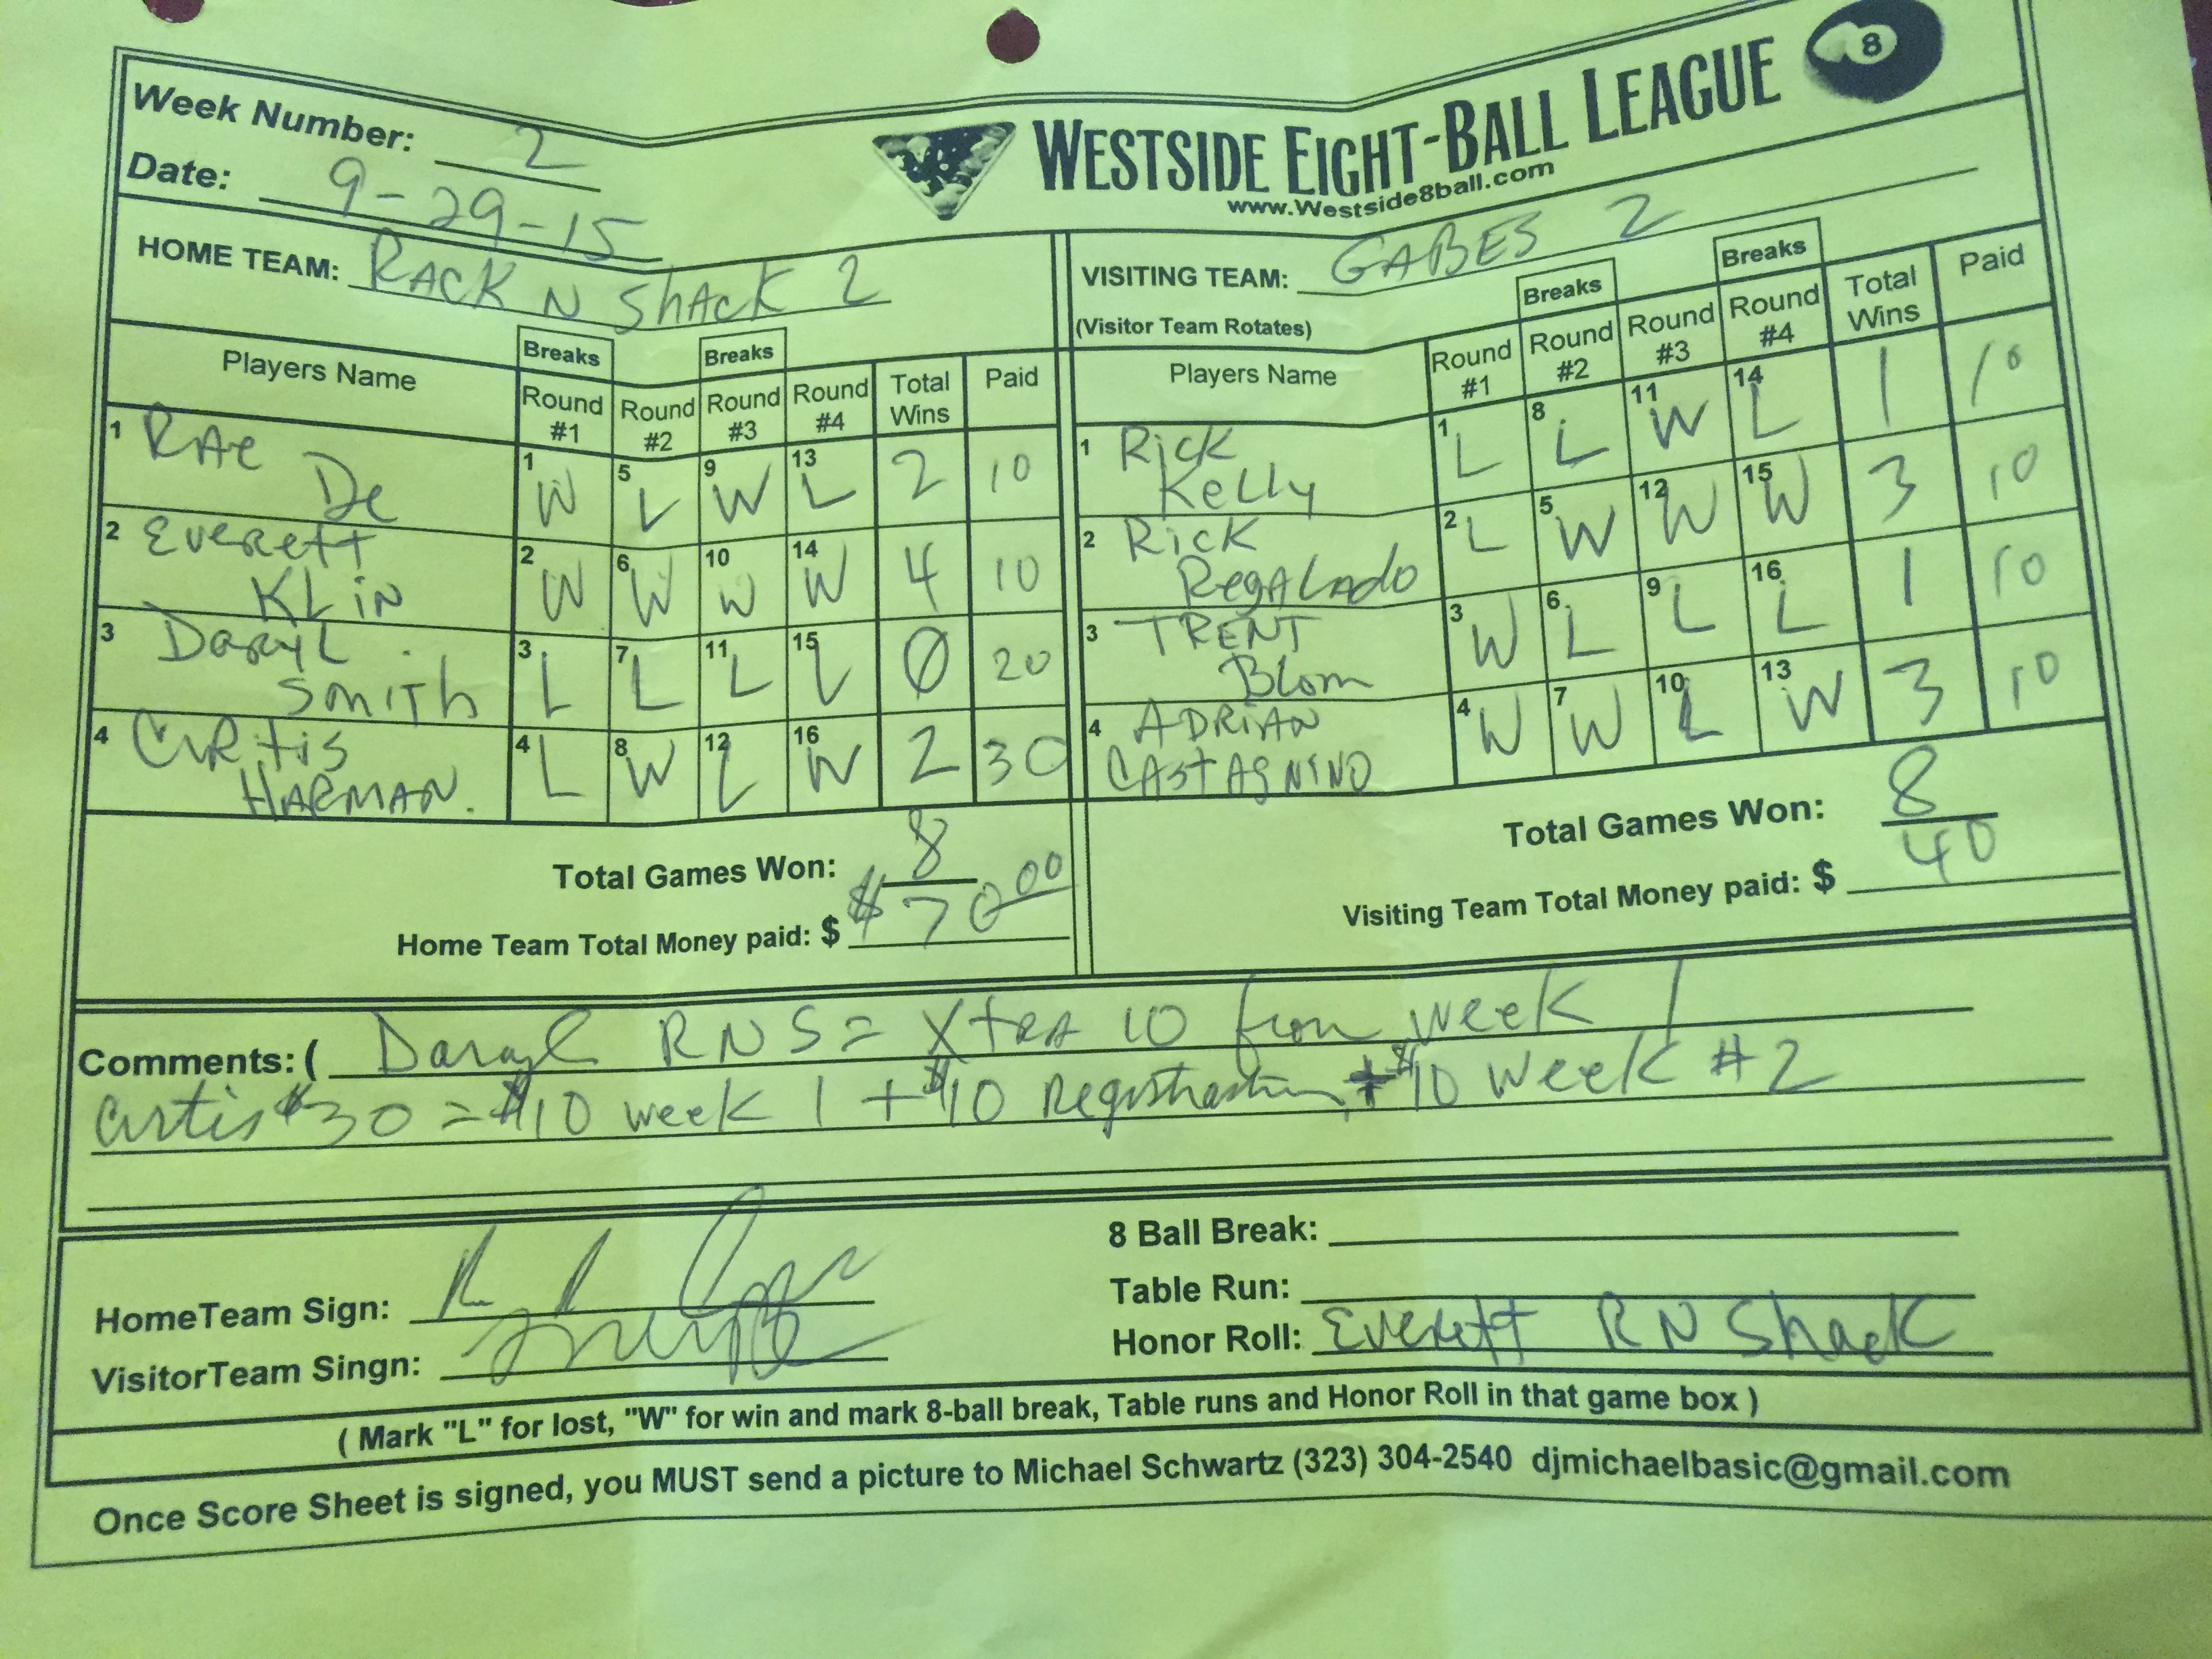 Week Number: 2
Date: 9-29-15
WESTSIDE EIGHT-BALL LEAGUE
8
www.Westside8ball.com
HOME TEAM: RACK N ShACK 2
Players Name Breaks Round #1 Round #2 Breaks Round #3 Round #4 Total Wins Paid
1 RAE De 1 W 5 L 9 W 13 L 2 10
2 Everett KLiN 2 W 6 W 10 W 14 W 4 10
3 DaryL Smith 3 L 7 L 11 L 15 L 0 20
4 CURtis HARMAN. 4 L 8 W 12 L 16 W 2 30
Total Games Won: 8
Home Team Total Money paid: $ $70 00
VISITING TEAM: GABES 2
(Visitor Team Rotates)
Players Name Round #1 Breaks Round #2 Round #3 Breaks Round #4 Total Wins Paid
1 Rick Kelly 1 L 8 L 11 W 14 L 1 10
2 Rick RegALado 2 L 5 W 12 W 15 W 3 10
3 TRENT Blom 3 W 6 L 9 L 16 L 1 10
4 ADRiAN CAStAgNiNO 4 W 7 W 10 L 13 W 3 10
Total Games Won: 8
Visiting Team Total Money paid: $ 40
Comments: ( Daryl RNS = XtRA 10 from week 1
Curtis $30 = $10 week 1 + $10 Registration + $10 week #2
HomeTeam Sign:
VisitorTeam Singn:
8 Ball Break:
Table Run:
Honor Roll: Everett RN Shack
( Mark "L" for lost, "W" for win and mark 8-ball break, Table runs and Honor Roll in that game box )
Once Score Sheet is signed, you MUST send a picture to Michael Schwartz (323) 304-2540 djmichaelbasic@gmail.com